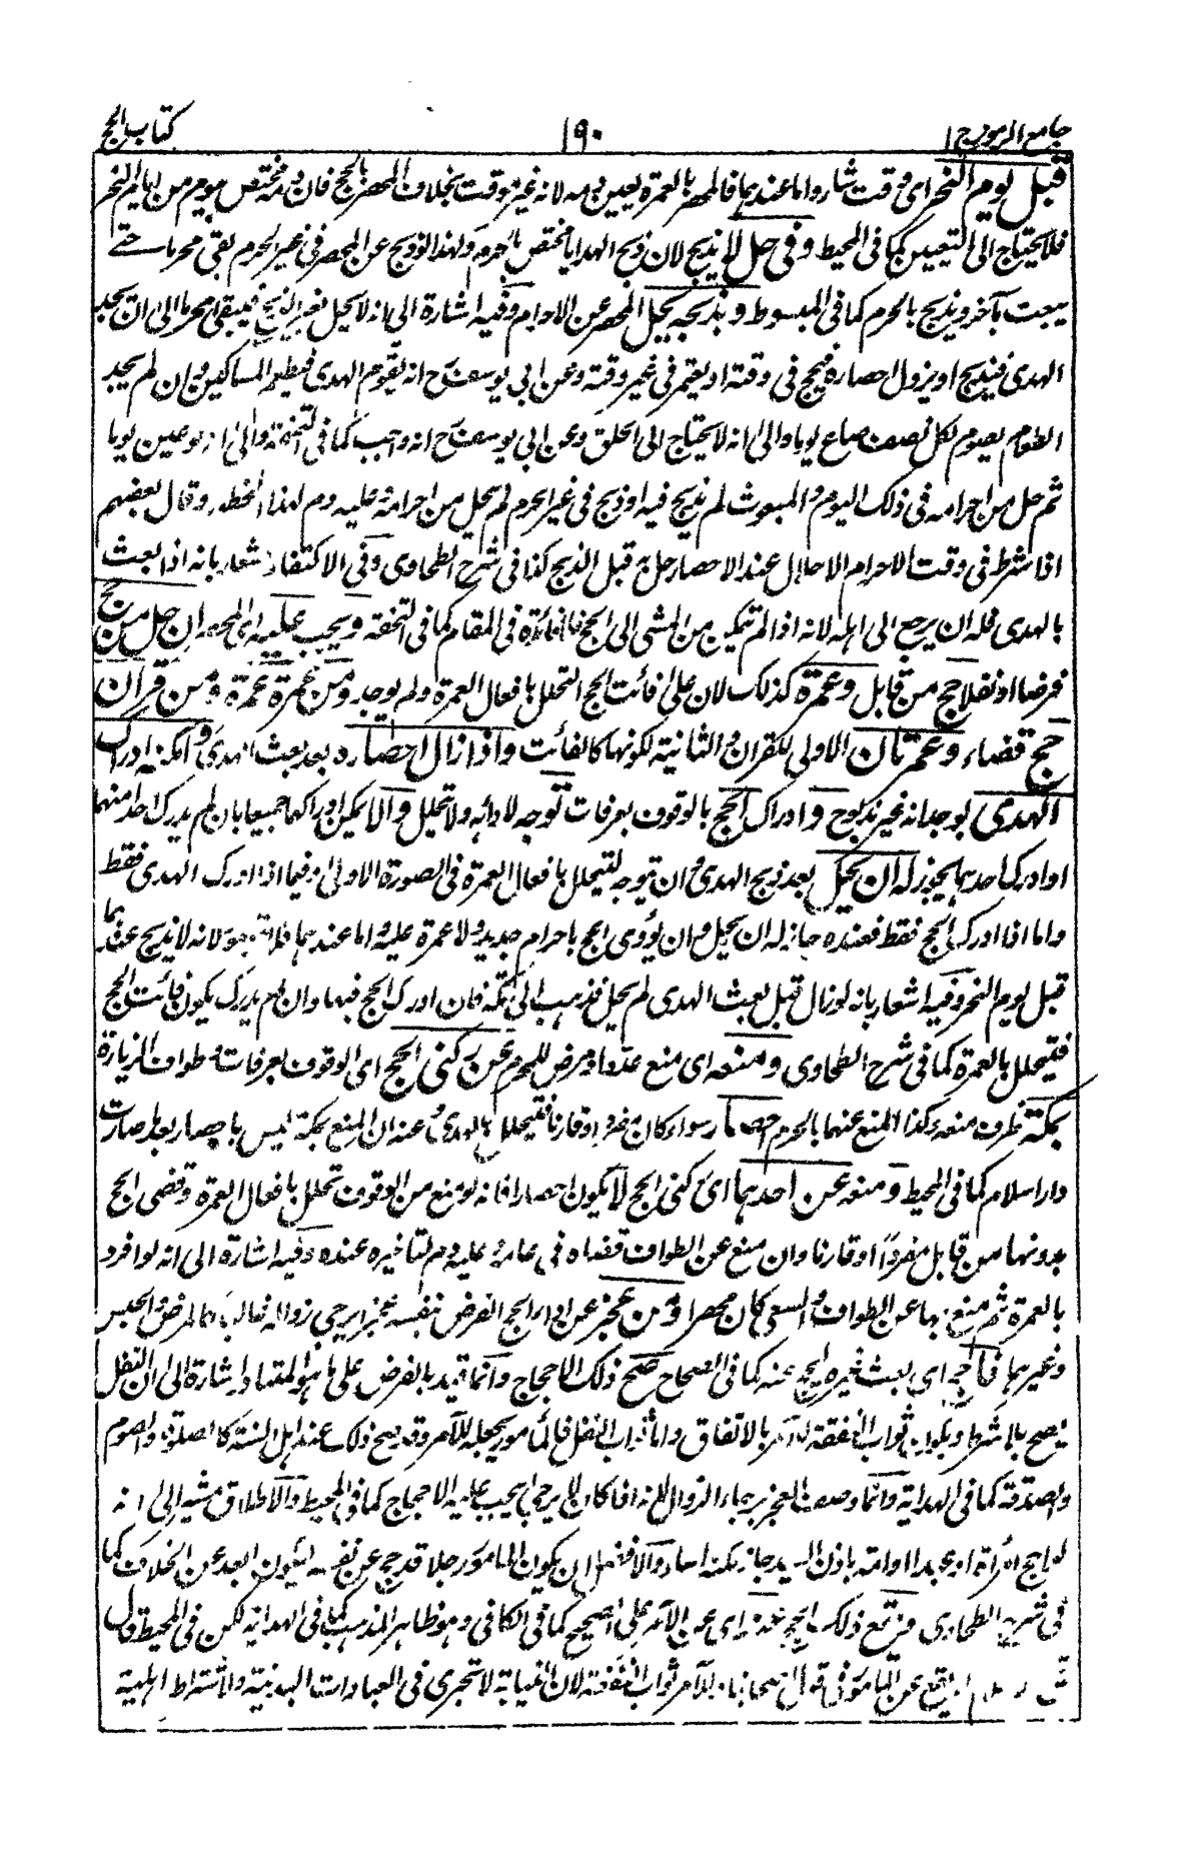 جامع الرموز ج ۱
۱۹۰
کتاب الحج
قبل يوم النحر ای وقت شاء واما عندهما فالمحصر بالعمرة يعين يومه لانه غير موقت بخلاف المحصر بالحج فان دمه مختص بيوم من ايام النحر
فلا يحتاج الى التعيين كما فى المحيط وفى حل لا يذبح لان ذبح الهدايا مختص بالحرم ولهذا لو ذبح عن المحصر فى غير الحرم بقى محرما حتى
يبعث بآخر ويذبح بالحرم كما فى المبسوط وبذبحه يحل المحصر عن الاحرام وفيه اشارة الى انه لا يحل بغير الذبح فيبقى محرما الى ان يجد
الهدى فيذبح او يزول احصاره فيحج فى وقته او يعتمر فى غير وقته وعن ابى يوسف رح انه يقوم الهدى فيطعم المساكين وان لم يجد
الطعام يصوم لكل نصف صاع يوما والى انه لا يحتاج الى الحلق وعن ابى يوسف رح انه واجب كما فى التحفة والى انه لو عين يوما
ثم حل من احرامه فى ذلك اليوم والمبعوث لم يذبح فيه او ذبح فى غير الحرم لم يحل من احرامه وعليه دم لهذا الخطر وقال بعضهم
اذا شرط فى وقت الاحرام الاحلال عند الاحصار حل به قبل الذبح كذا فى شرح الطحاوى وفى الاكتفاء اشعار بانه اذا بعث
بالهدى فله ان يرجع الى اهله لانه اذا لم يتمكن من المشى الى الحج فلا فائدة فى المقام كما فى التحفة ويجب عليه ای المحصر ان حل من حج
فرضا او نفلا حج من قابل وعمرة كذلك لان على فائت الحج التحلل بافعال العمرة ولم يوجد ومن عمرة عمرة ومن قران
حج قضاء وعمرتان الاولى للقران والثانية لكونها كالفائت واذا زال احصاره بعد بعث الهدى وامكنه ادراك
الهدى بوجدانه غير مذبوح وادراك الحج بالوقوف بعرفات توجه لادائه ولا تحلل والا يمكن ادراكهما جميعا بان لم يدرك احد منهما
او ادرك احدهما يجوز له ان يحل بعد ذبح الهدى وان توجه لتحلل بافعال العمرة فى الصورة الاولى وفيما اذا ادرك الهدى فقط
واما اذا ادرك الحج فقط فعنده جاز له ان يحل وان يؤدى الحج باحرام جديد ولا عمرة عليه واما عندهما فلا لانه لا يذبح عندهما
قبل يوم النحر وفيه اشعار بانه لو زال قبل بعث الهدى لم يحل فذهب الى مكة فان ادرك الحج فبها وان لم يدرك يكون فائت الحج
فيتحلل بالعمرة كما فى شرح الطحاوى ومنعه ای منع عدو او مرض للمحرم عن ركنى الحج ای الوقوف بعرفات وطواف الزيارة
بمكة ظرف منعه وكذا المنع عنهما بالحرم احصار سواء كان مفردا او قارنا فيتحلل بالهدى وعنه ان المنع بمكة ليس باحصار بعد ما صارت
دار اسلام كما فى المحيط ومنعه عن احدهما ای ركنى الحج لا يكون احصارا فانه لو منع من الوقوف تحلل بافعال العمرة وقضى الحج
بدونها من قابل مفردا او قارنا وان منع عن الطواف قضاه فى عامه وعليه دم لتاخيره عنده وفيه اشارة الى انه لو افرد
بالعمرة ثم منع بها عن الطواف والسعى كان محصرا ومن عجز عن اداء الحج الفرض بنفسه عجزا يرجى زواله غالبا كالمرض والحبس
وغيرهما فاحج ای بعث غيره ليحج عنه كما فى الصحاح صح ذلك الاحجاج وانما قيد بالفرض على ما هو المعتاد اشارة الى ان النفل
يصح بلا شرط ويكون ثواب النفقة للآمر بالاتفاق واما ثواب النفل فالمأمور يجعله للآمر وقد صح ذلك عند اهل السنة كالصلوة والصوم
والصدقة كما فى الهداية وانما وصف العجز برجاء الزوال لانه اذا كان لا يرجى لا يجب عليه الاحجاج كما فى المحيط والاطلاق مشير الى انه
لو احج امرأة او عبدا او امة باذن السيد جاز لكنه اساء والافضل ان يكون المامور رجلا قد حج عن نفسه ليكون ابعد عن الخلاف كما
فى شرح الطحاوى ويقع ذلك الحج عنه ای عن الآمر على الصحيح كما فى الكافى وهو ظاهر المذهب كما فى الهداية لكن فى المحيط قال
يقع عن المامور فى قول اصحابنا وللآمر ثواب النفقة لان النيابة لا تجرى فى العبادات البدنية ولاشتراط اهلية